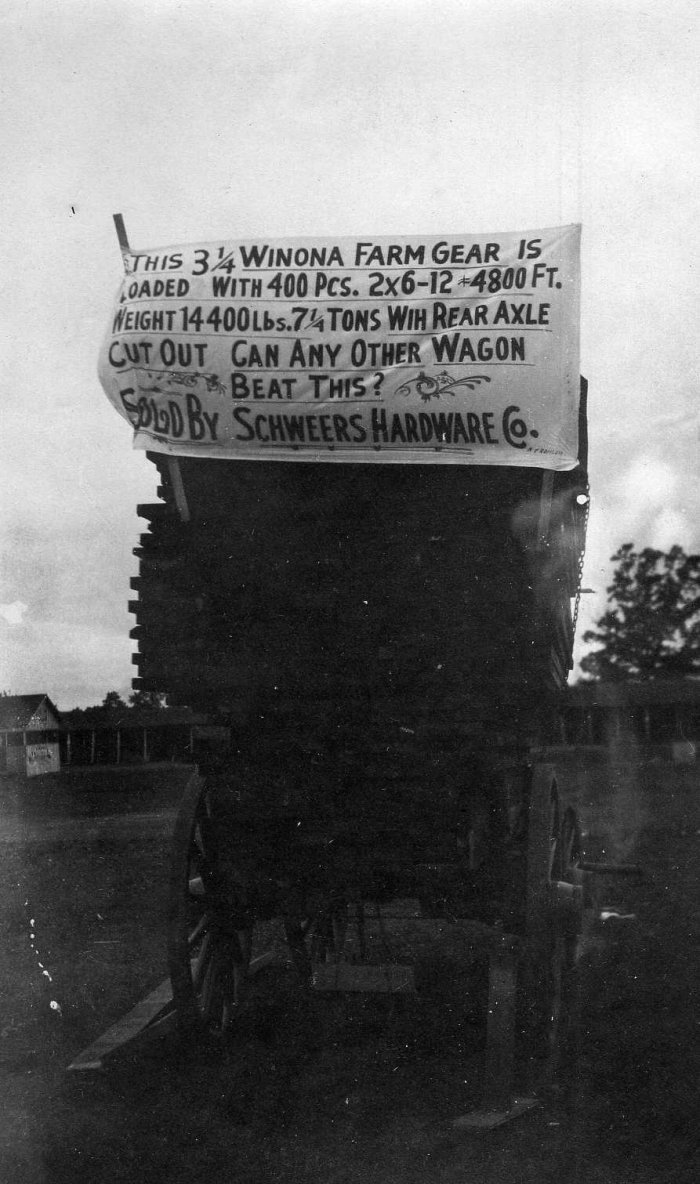 THIS 3 1/4 WINONA FARM GEAR IS
LOADED WITH 400 PCS. 2X6-12 4800 FT.
WEIGHT 14400 Lbs. 7 1/4 TONS WIH REAR AXLE
CUT OUT CAN ANY OTHER WAGON
BEAT THIS?
SOLD BY SCHWEERS HARDWARE CO.